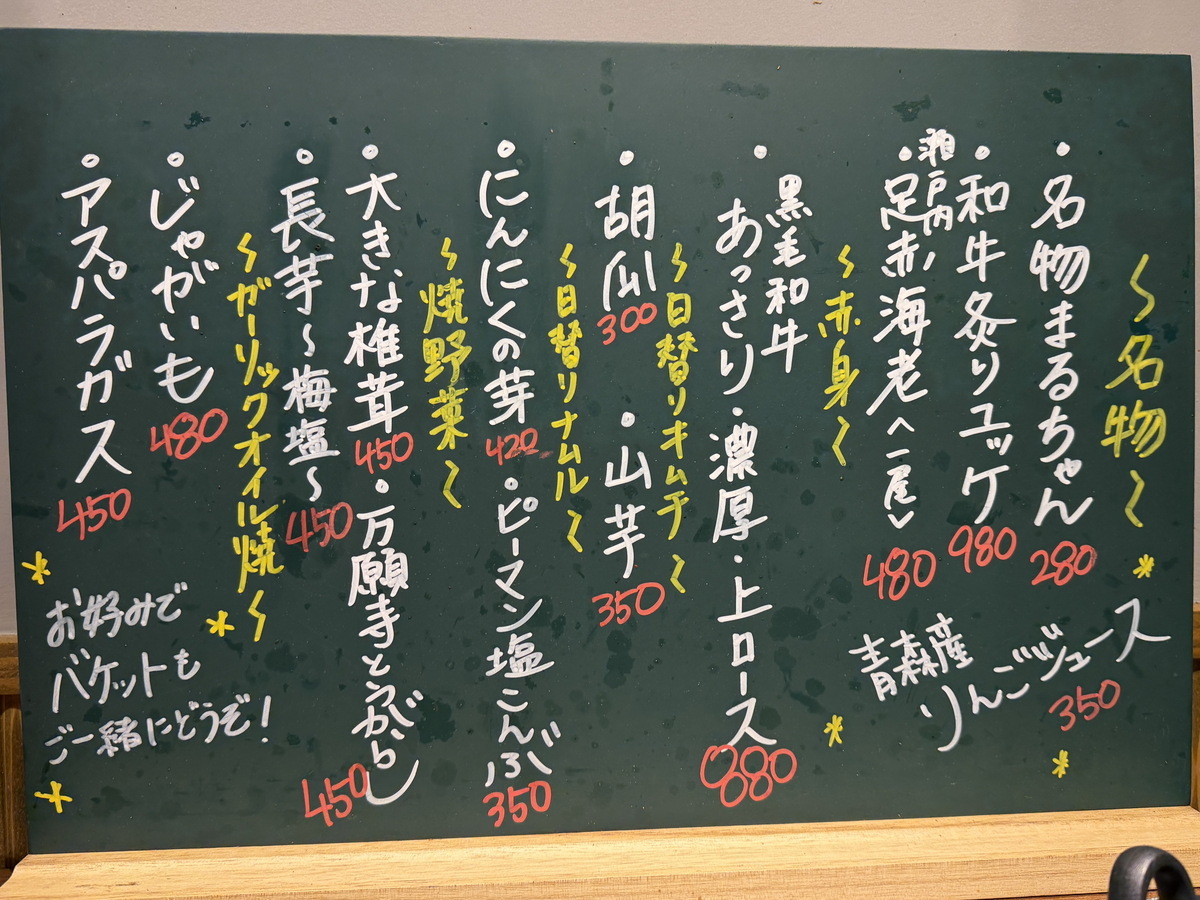 ~名物~
・名物まるちゃん 280
・和牛炙りユッケ 980
瀬戸内
・足赤海老 〈一尾〉 480
青森産
りんごジュース
350
~赤身~
・黒毛和牛
あっさり・濃厚・上ロース 880
~日替りキムチ~
・胡瓜 300 ・山芋 350
~日替りナムル~
・にんにくの芽 420 ・ピーマン塩こんぶ 350
~焼野菜~
・大きな椎茸 450 ・万願寺とうがらし 450
・長芋~梅塩~ 450
~ガーリックオイル焼~
・じゃがいも 480
・アスパラガス 450
お好みで
バケットも
ご一緒にどうぞ!